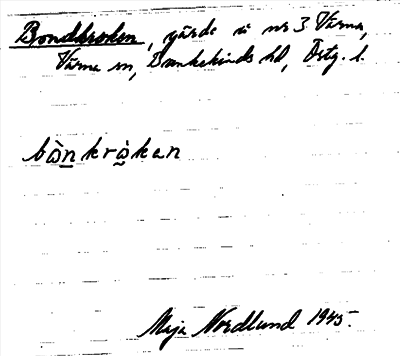 Bondkroken, gärde å nr 3 Värna,
Värna sn, Bankekinds hd, Östg. l.
bònkròkan
Maja Nordlund 1945.